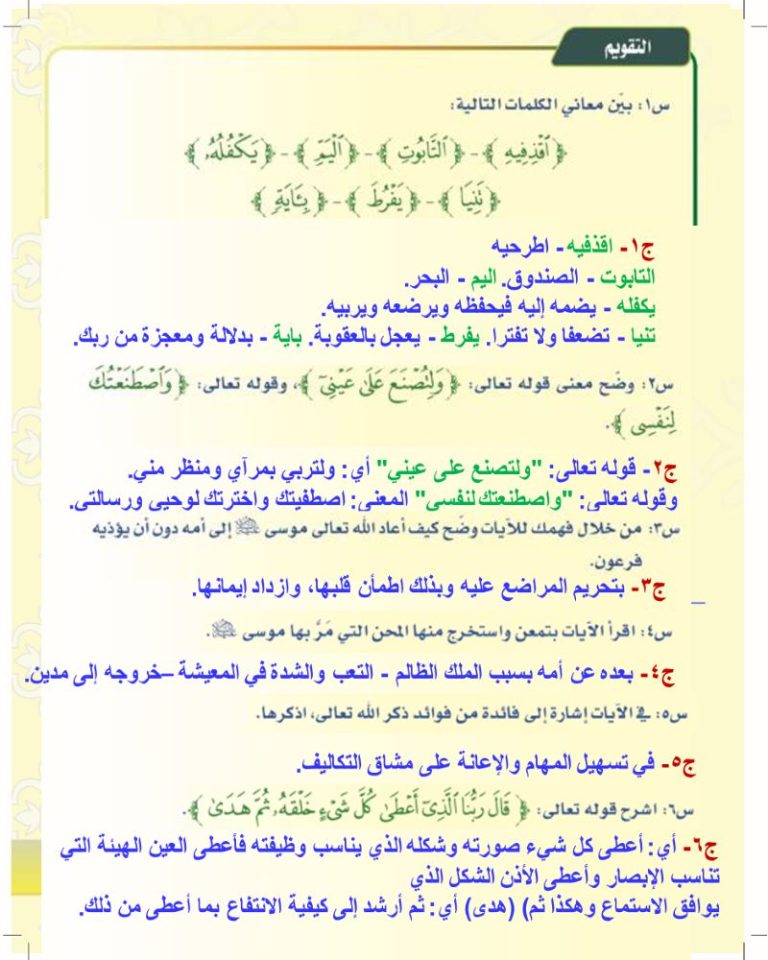 التقويم
س١: بيّن معاني الكلمات التالية:
﴿ ٱقۡذِفِيهِ ﴾ - ﴿ ٱلتَّابُوتِ ﴾ - ﴿ ٱلۡيَمِّ ﴾ - ﴿ يَكۡفُلُهُۥ ﴾
﴿ تَنِيَا ﴾ - ﴿ يَفۡرُطَ ﴾ - ﴿ بِـَٔايَةٖ ﴾
ج١- اقذفيه - اطرحيه
التابوت - الصندوق. اليم - البحر.
يكفله - يضمه إليه فيحفظه ويرضعه ويربيه.
تنيا - تضعفا ولا تفترا. يفرط - يعجل بالعقوبة. باية - بدلالة ومعجزة من ربك.
س٢: وضّح معنى قوله تعالى: ﴿ وَلِتُصۡنَعَ عَلَىٰ عَيۡنِيٓ ﴾، وقوله تعالى: ﴿ وَٱصۡطَنَعۡتُكَ
لِنَفۡسِي ﴾.
ج٢- قوله تعالى: "ولتصنع على عيني" أي: ولتربي بمرآي ومنظر مني.
وقوله تعالى: "واصطنعتك لنفسى" المعنى: اصطفيتك واخترتك لوحيى ورسالتى.
س٣: من خلال فهمك للآيات وضّح كيف أعاد الله تعالى موسى ﷺ إلى أمه دون أن يؤذيه
فرعون.
ج٣- بتحريم المراضع عليه وبذلك اطمأن قلبها، وازداد إيمانها.
س٤: اقرأ الآيات بتمعن واستخرج منها المحن التي مَرَّ بها موسى ﷺ.
ج٤- بعده عن أمه بسبب الملك الظالم - التعب والشدة في المعيشة –خروجه إلى مدين.
س٥: في الآيات إشارة إلى فائدة من فوائد ذكر الله تعالى، اذكرها.
ج٥- في تسهيل المهام والإعانة على مشاق التكاليف.
س٦: اشرح قوله تعالى: ﴿ قَالَ رَبُّنَا ٱلَّذِيٓ أَعۡطَىٰ كُلَّ شَيۡءٍ خَلۡقَهُۥ ثُمَّ هَدَىٰ ﴾.
ج٦- أي: أعطى كل شيء صورته وشكله الذي يناسب وظيفته فأعطى العين الهيئة التي
تناسب الإبصار وأعطى الأذن الشكل الذي
يوافق الاستماع وهكذا ثم) (هدى) أي: ثم أرشد إلى كيفية الانتفاع بما أعطى من ذلك.